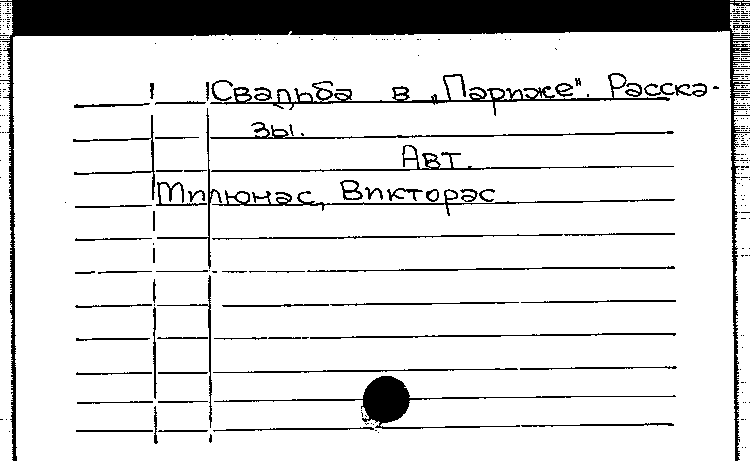 Свадьба в „Париже". Расска-
зы.
Авт.
Милюнас, Викторас